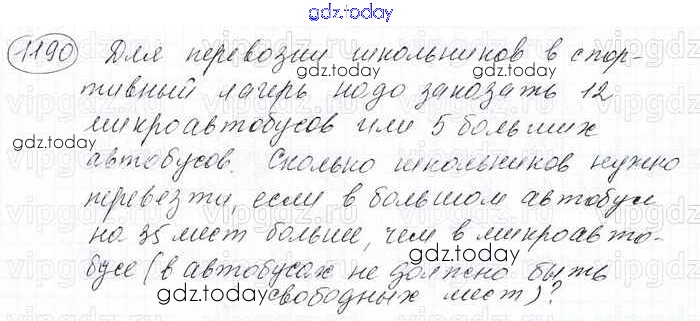 gdz.today
1190 Для перевозки школьников в спор-
gdz.today
тивный лагерь надо заказать 12
gdz.today
микроавтобусов или 5 больших
gdz.today
автобусов. Сколько школьников нужно
gdz.today
перевезти, если в большом автобусе
на 35 мест больше, чем в микроавто-
gdz.today
бусе (в автобусах не должно быть
gdz.today свободных мест)?